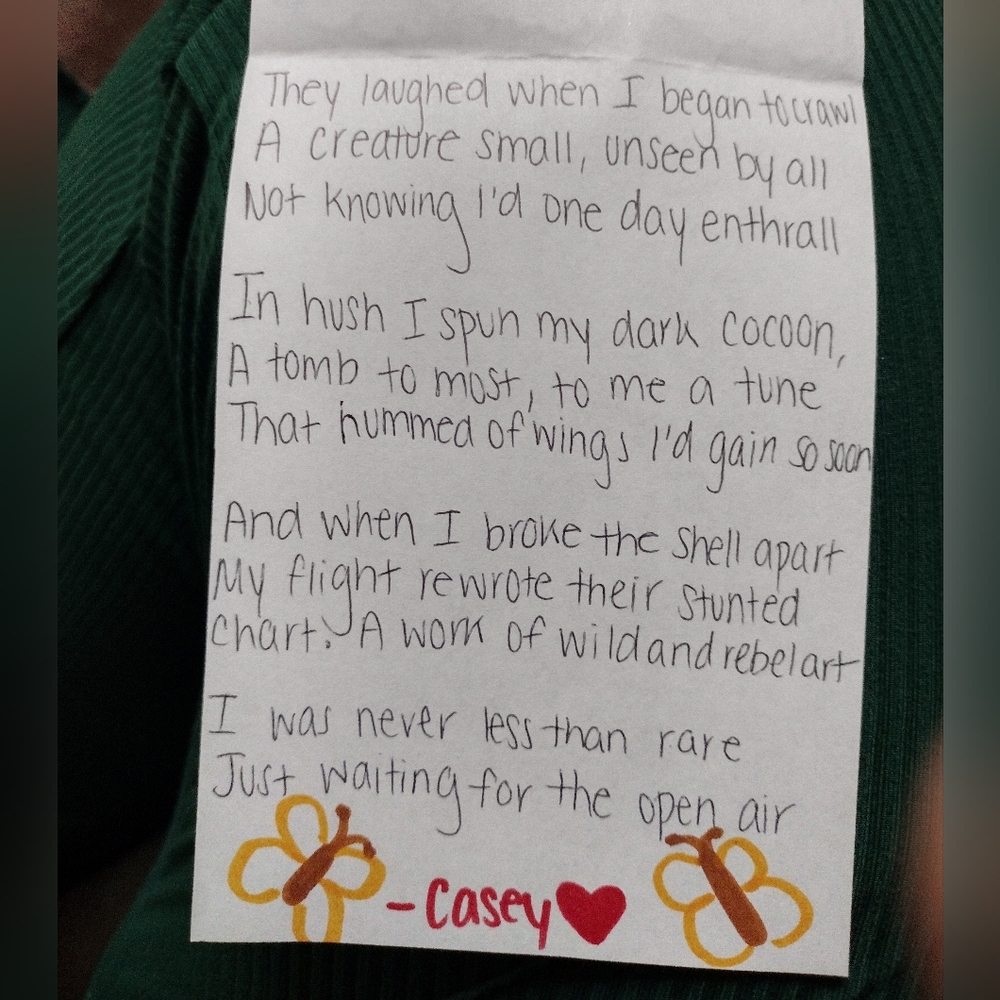 They laughed when I began to crawl
A creature small, unseen by all
Not knowing I'd one day enthrall
In hush I spun my dark cocoon,
A tomb to most, to me a tune
That hummed of wings I'd gain so soon
And when I broke the shell apart
My flight rewrote their stunted
chart. A work of wild and rebel art
I was never less than rare
Just waiting for the open air
- Casey